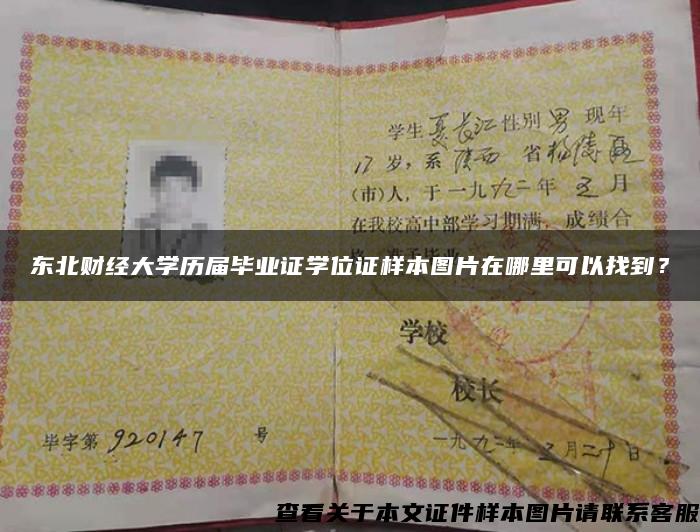 学生夏长江性别男现年
17岁,系陕西省
(市)人,于一九九二年五月
在我校高中部学习期满,成绩合
东北财经大学历届毕业证学位证样本图片在哪里可以找到?
学校
校长
毕字第920147号
一九九二年五月二十日
查看关于本文证件样本图片请联系客服